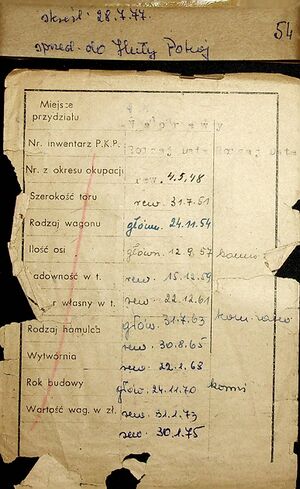 skreśl. 28.7.77.
sprzed. do Huty Pokój
54
Miejsce
przydziału
Naprawy
Nr. inwentarz P.K.P.
Rodzaj Data Rodzaj Data
Nr. z okresu okupacji
rew. 4.5.48
Szerokość toru rew. 31.7.51
Rodzaj wagonu główn. 24.11.54
Ilość osi główn. 12.9.57
adowność w t. rew. 15.12.59
r własny w t. rew. 22.12.61
Rodzaj hamulca głów. 31.7.63
Wytwórnia rew. 30.8.65
rew. 22.1.68
Rok budowy głów. 24.11.70
Wartość wag. w zł. rew. 31.1.73
rew. 30.1.75